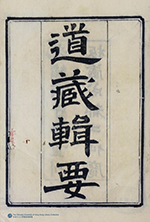 道藏輯要